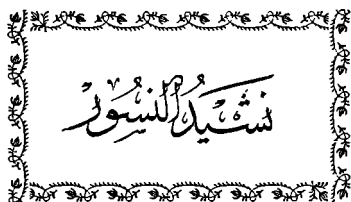 نَشِيدُ النُّسُورِ